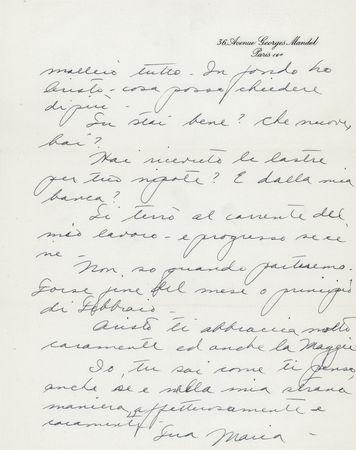 36, Avenue Georges Mandel
Paris 16e
tutto. In fondo ho
Aristo - cosa posso chiedere
di più -
Tu stai bene? Che nuove
hai?
Hai ricevuto le lastre
per tuo nipote? E dalla mia
banca?
Ti terrò al corrente del
mio lavoro - e progresso se ce
ne -
Non so quando partiremo.
Forse fine del mese o principio
di Febbraio -
Aristo ti abbraccia molto
caramente ed anche la Maggie
Io, tu sai come ti penso,
anche se e nella mia strana
maniera, affettuosamente e
caramente -
Tua Maria -